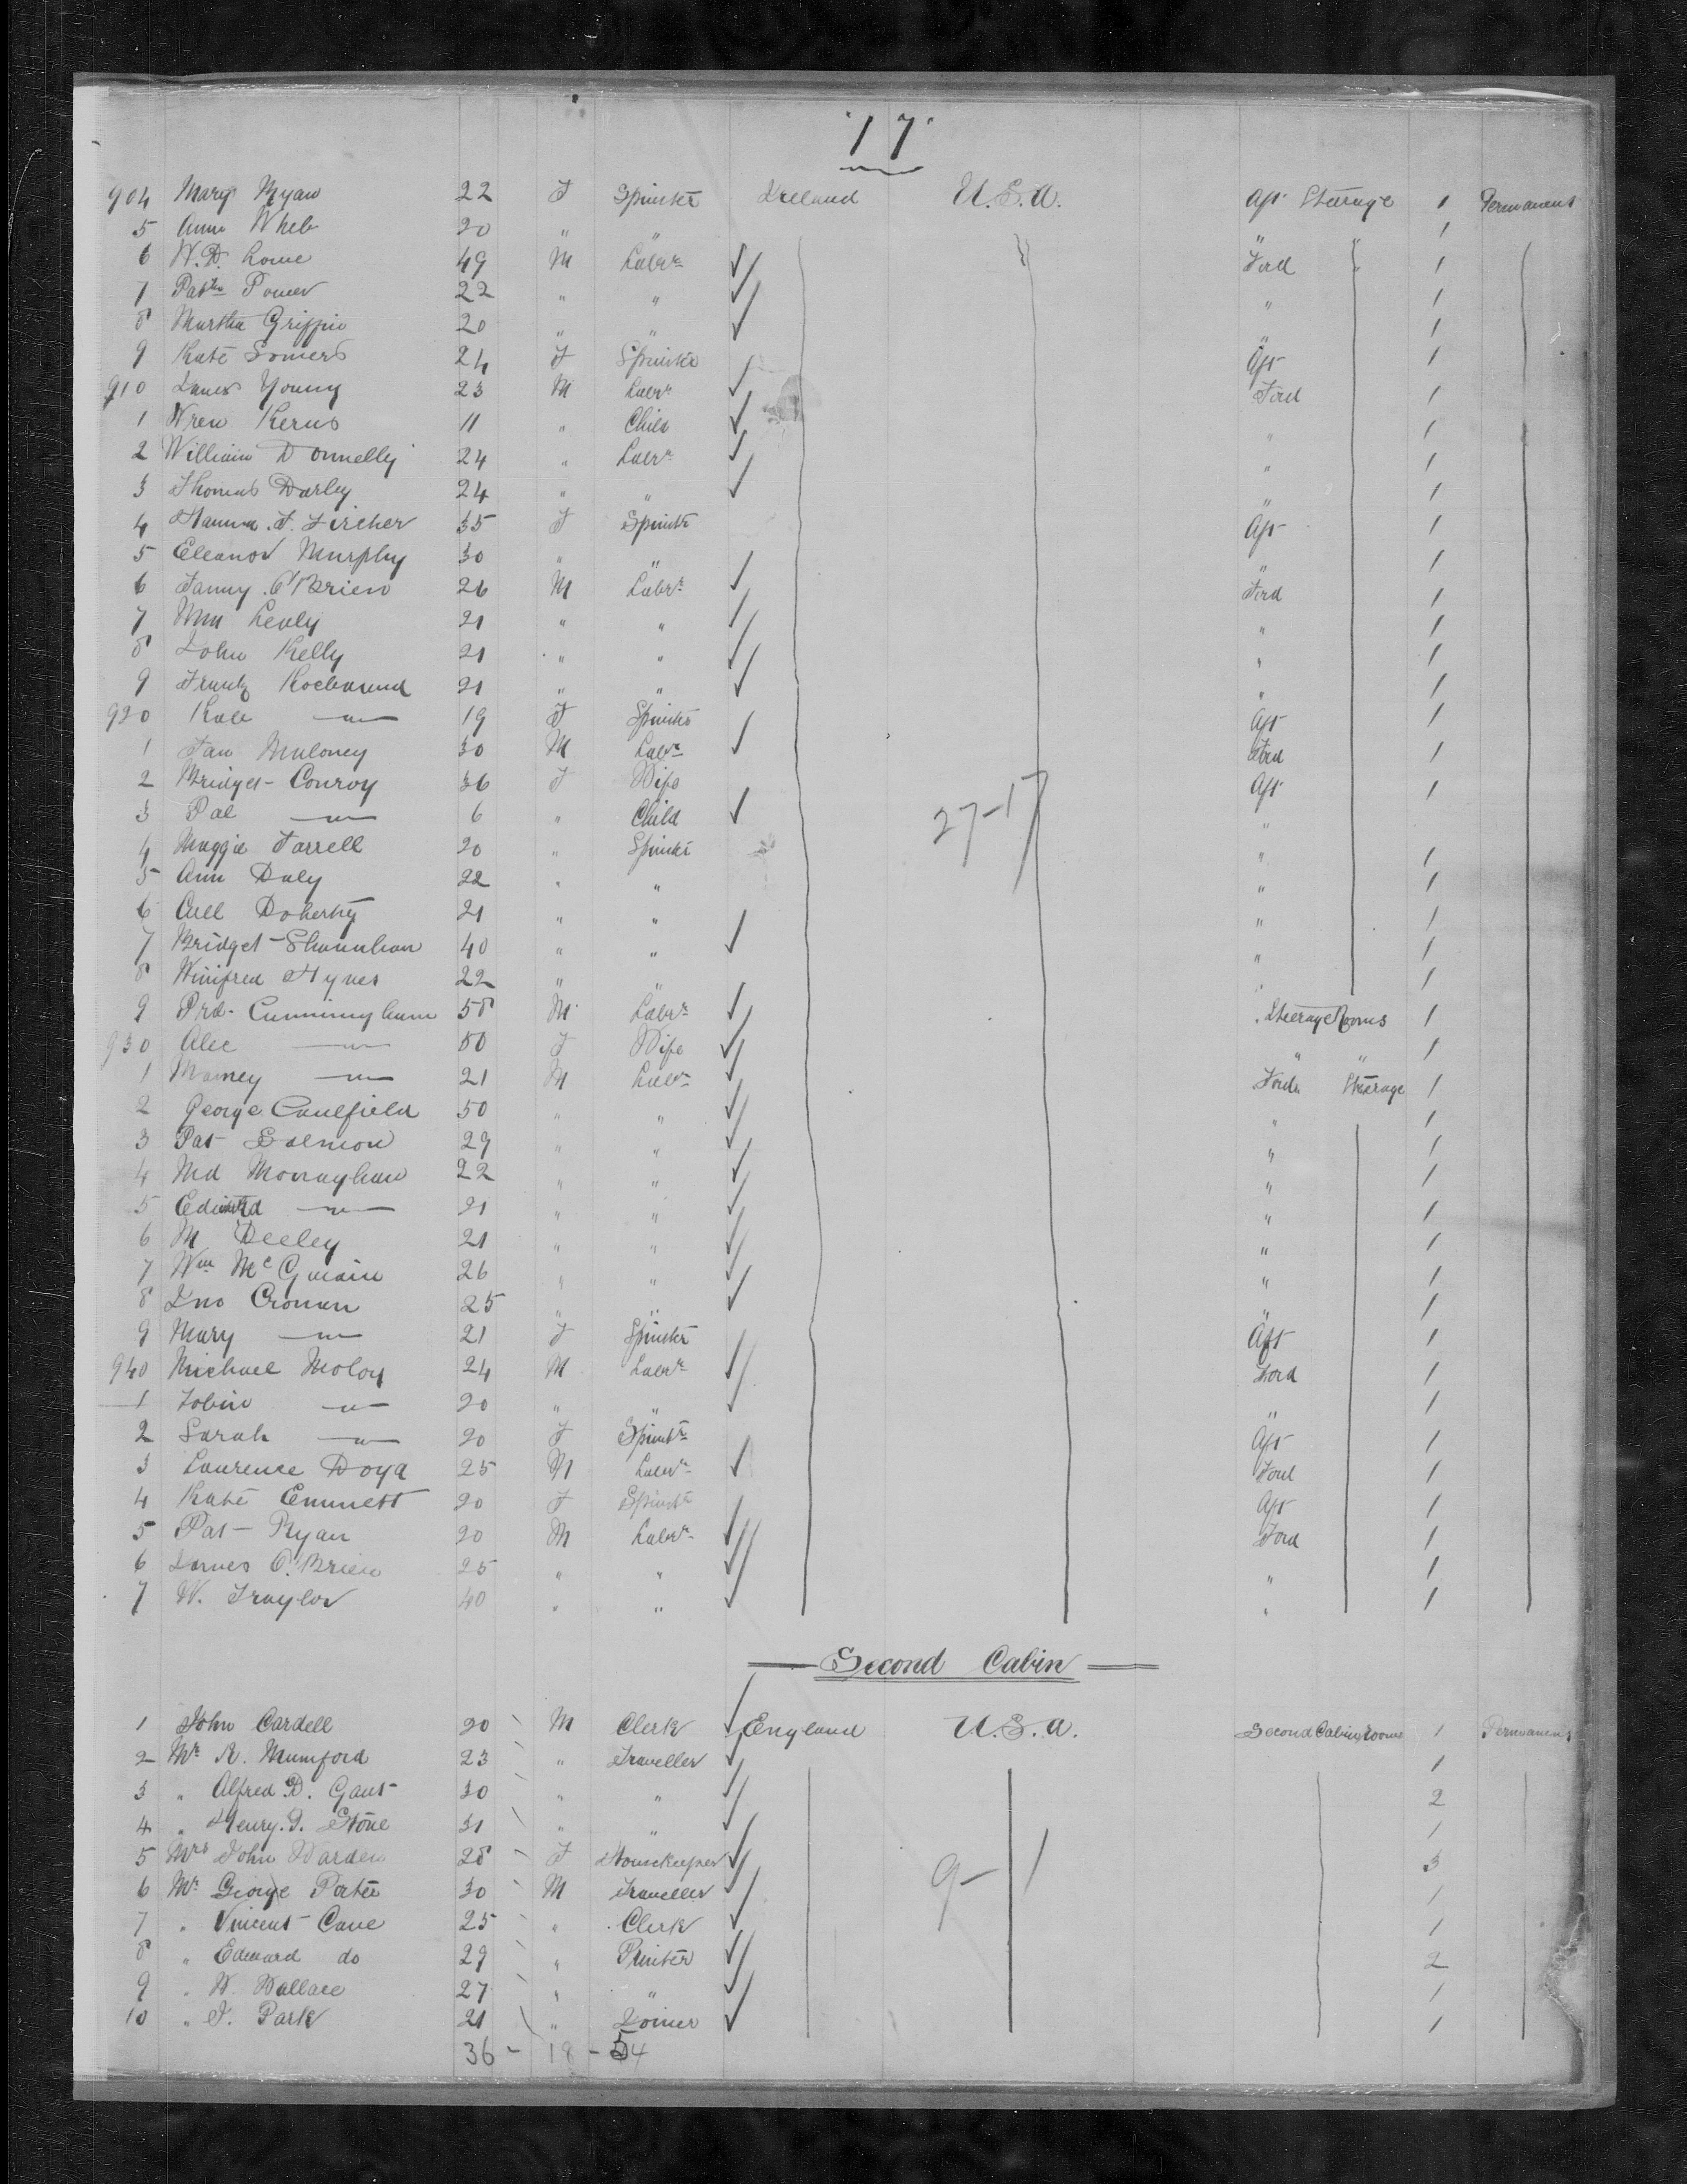 17
904 Mary Ryan 22 F Spinster Ireland U.S.A. Aft Steerage 1 Permanent
5 Ann 20 " " " 1
6 W.D. Lowe 49 M Labr Ford " 1
7 Power 22 " " " 1
8 Martha Griffin 20 " " " 1
9 Kate Somers 24 F Spinster Aft 1
910 James Young 23 M Labr Ford 1
1 Kerns 11 " Child " 1
2 William Donnelly 24 " Labr " 1
3 Thomas Darley 24 " " " 1
4 Hanna. F. 35 F Spinstr Aft 1
5 Eleanor Murphy 30 " " " 1
6 Fanny. O'Brien 26 M Labr Ford 1
7 Wm 21 " " " 1
8 John Kelly 21 " " " 1
9 21 " " " 1
920 Kate —"— 19 F Spinstr Aft 1
1 Jan Maloney 30 M Labr Ford 1
2 Bridget Conroy 36 F Wife Aft 1
3 Pat —"— 6 " Child "
4 Maggie Farrell 20 " Spinstr " 1
5 Ann Daly 22 " " " 1
6 Doherty 21 " " " 1
7 Bridget Shannhan 40 " " " 1
8 Winifred Hynes 22 " " " 1
9 Cunningham 58 M Labr Steerage Rooms 1
930 Alec —"— 50 F Wife " " 1
1 —"— 21 M Labr Ford Steerage 1
2 George Caulfield 50 " " " 1
3 Pat Salmon 29 " " " 1
4 Md Monaghan 22 " " " 1
5 Edward —"— 21 " " " 1
6 M Deeley 21 " " " 1
7 Wm 26 " " " 1
8 Jno Cronan 25 " " " 1
9 Mary —"— 21 F Spinstr Aft 1
940 Michael Moloy 24 M Labr Ford 1
1 Tobin —"— 20 " " " 1
2 Sarah —"— 20 F Spinstr Aft 1
3 Laurence Doya 25 M Labr Ford 1
4 Kate Emmett 20 F Spinstr Aft 1
5 Pat Ryan 20 M Labr Ford 1
6 James O'Brien 25 " " " 1
7 W. Traylor 40 " " " 1
27-17
Second Cabin
1 John Cardell 20 M Clerk England U.S.A. Second Cabin Rooms 1 Permanent
2 Mr R. Mumford 23 " Traveller 1
3 " Alfred D. Gant 30 " " 2
4 " Henry. Stone 31 " " 1
5 Mrs John Warden 28 F Housekeeper 3
6 Mr George Porter 30 M Traveller 1
7 " Vincent Cave 25 " Clerk 1
8 " Edward do 29 " Printer 2
9 " W. Wallace 27 " " 1
10 " J. Park 21 " Joiner 1
9-1
36 - 18 - 54